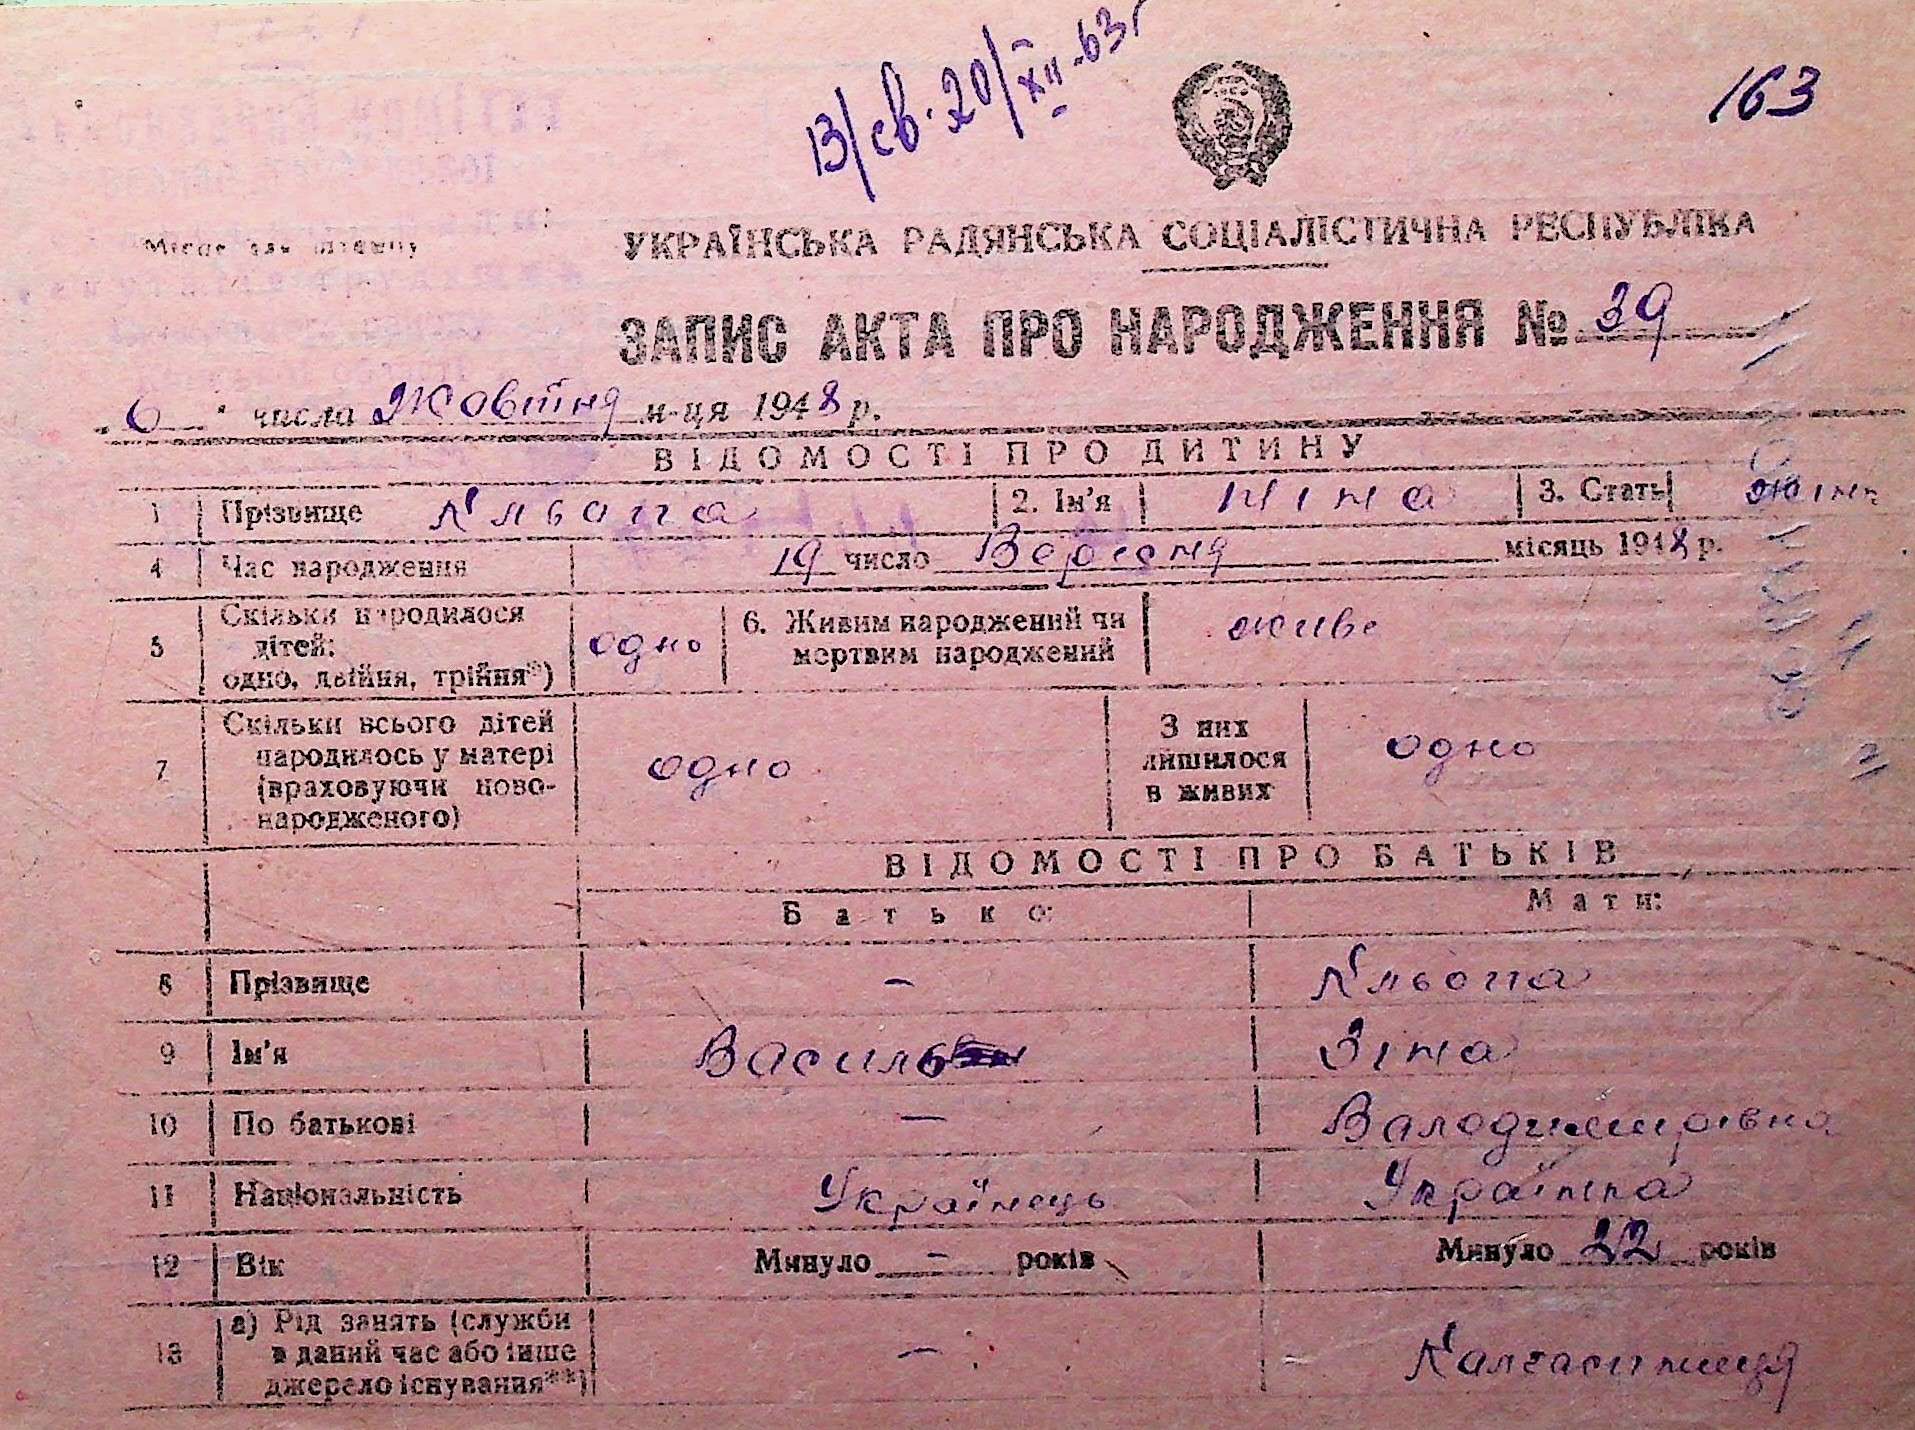 13/св. 20/XII-63г
163
Місце для штампу
УКРАЇНСЬКА РАДЯНСЬКА СОЦІАЛІСТИЧНА РЕСПУБЛІКА
ЗАПИС АКТА ПРО НАРОДЖЕННЯ № 39
6 числа Жовтня м-ця 1948 р.
ВІДОМОСТІ ПРО ДИТИНУ
1 Прізвище 2. Ім'я Ніна 3. Стать жінк
4 Час народження 19 число Вересня місяць 1948 р.
5 Скільки народилося дітей: одно, двійня, трійня*) одно 6. Живим народжений чи мертвим народжений живе
7 Скільки всього дітей народилось у матері (враховуючи ново-народженого) одно З них лишилося в живих одно
ВІДОМОСТІ ПРО БАТЬКІВ
Батько: Мати:
8 Прізвище –
9 Ім'я Василь Зіна
10 По батькові – Валодимирівна
11 Національність Українець Українка
12 Вік Минуло – років Минуло 22 років
13 а) Рід занять (служби в даний час або інше джерело існування**) – Калгаспниця